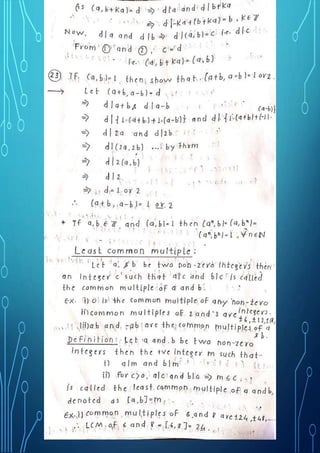 As (a, b+ka) = d ⇒ d|a and d|b+ka
⇒ d|-ka+(b+ka) = b, k∈Z
Now, d|a and d|b ⇒ d|(a,b)=c i.e. d|c
From ① and ②, c=d
i.e. (a, b+ka) = (a,b)
(23) If (a,b)=1, then show that (a+b, a-b)=1 or 2.
→ Let (a+b, a-b) = d
⇒ d|a+b & d|a-b
⇒ d|{1·(a+b)+1·(a-b)} and d|{1·(a+b)+(-1)· (a-b)}
⇒ d|2a and d|2b
⇒ d|(2a,2b) ... by Thrm
⇒ d|2(a,b)
⇒ d|2
⇒ d=1 or 2
∴ (a+b, a-b)=1 or 2
* If a,b∈Z and (a,b)=1 then (aⁿ,b)=(a,bⁿ)=
(aⁿ,bⁿ)=1, ∀n∈N
Least common multiple:
Let a & b be two non-zero integers then
an integer 'c' such that a|c and b|c is called
the common multiple of a and b.
ex. i) 0 is the common multiple of any non-zero
integers.
ii) common multiples of 2 and 3 are
±6, ±12, ±18,
iii) ab and -ab are the common multiples of a
& b.
Definition: Let a and b be two non-zero
integers then the +ve integer m such that-
i) a|m and b|m
ii) for c>0, a|c and b|c ⇒ m≤c,
is called the least common multiple of a and b,
denoted as [a,b]=m.
ex. i) common multiples of 6 and 8 are ±24, ±48,
∴ LCM of 6 and 8 = [6,8] = 24.